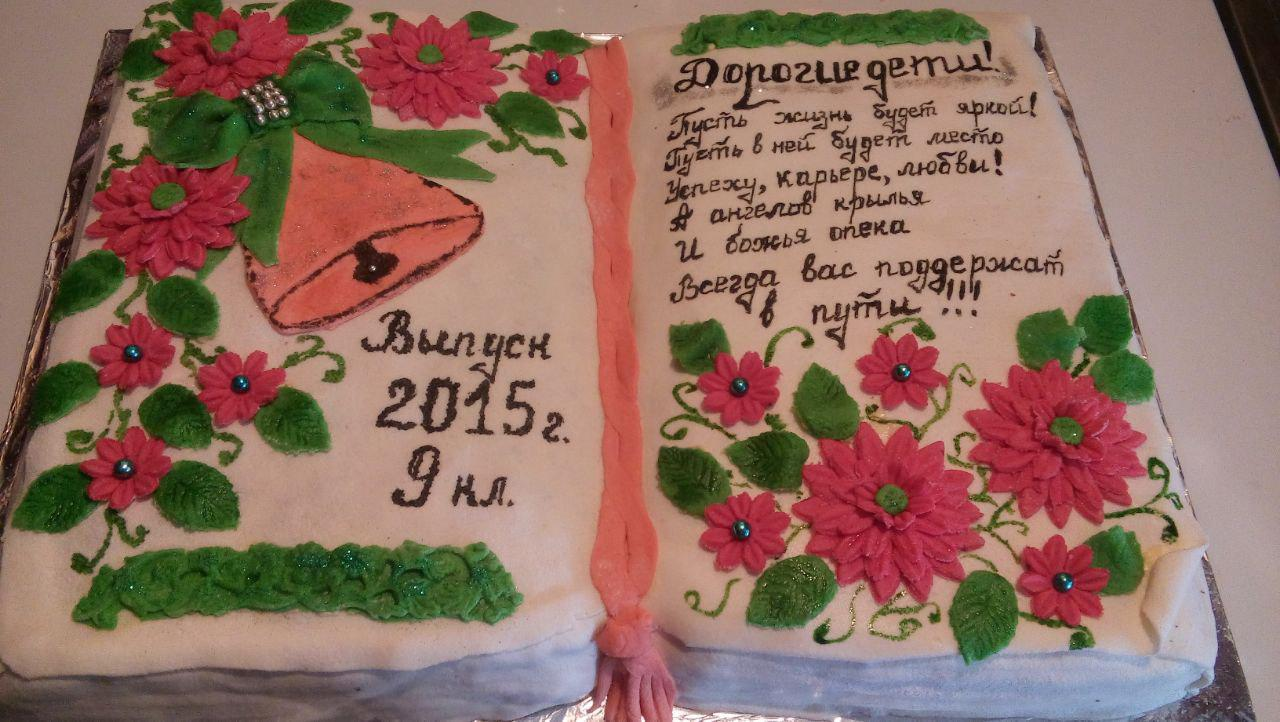 Выпуск
2015 г.
9 кл.
Дорогие дети!
Пусть жизнь будет яркой!
Пусть в ней будет место
Успеху, карьере, любви!
А ангелов крылья
И божья опека
Всегда вас поддержат
в пути !!!